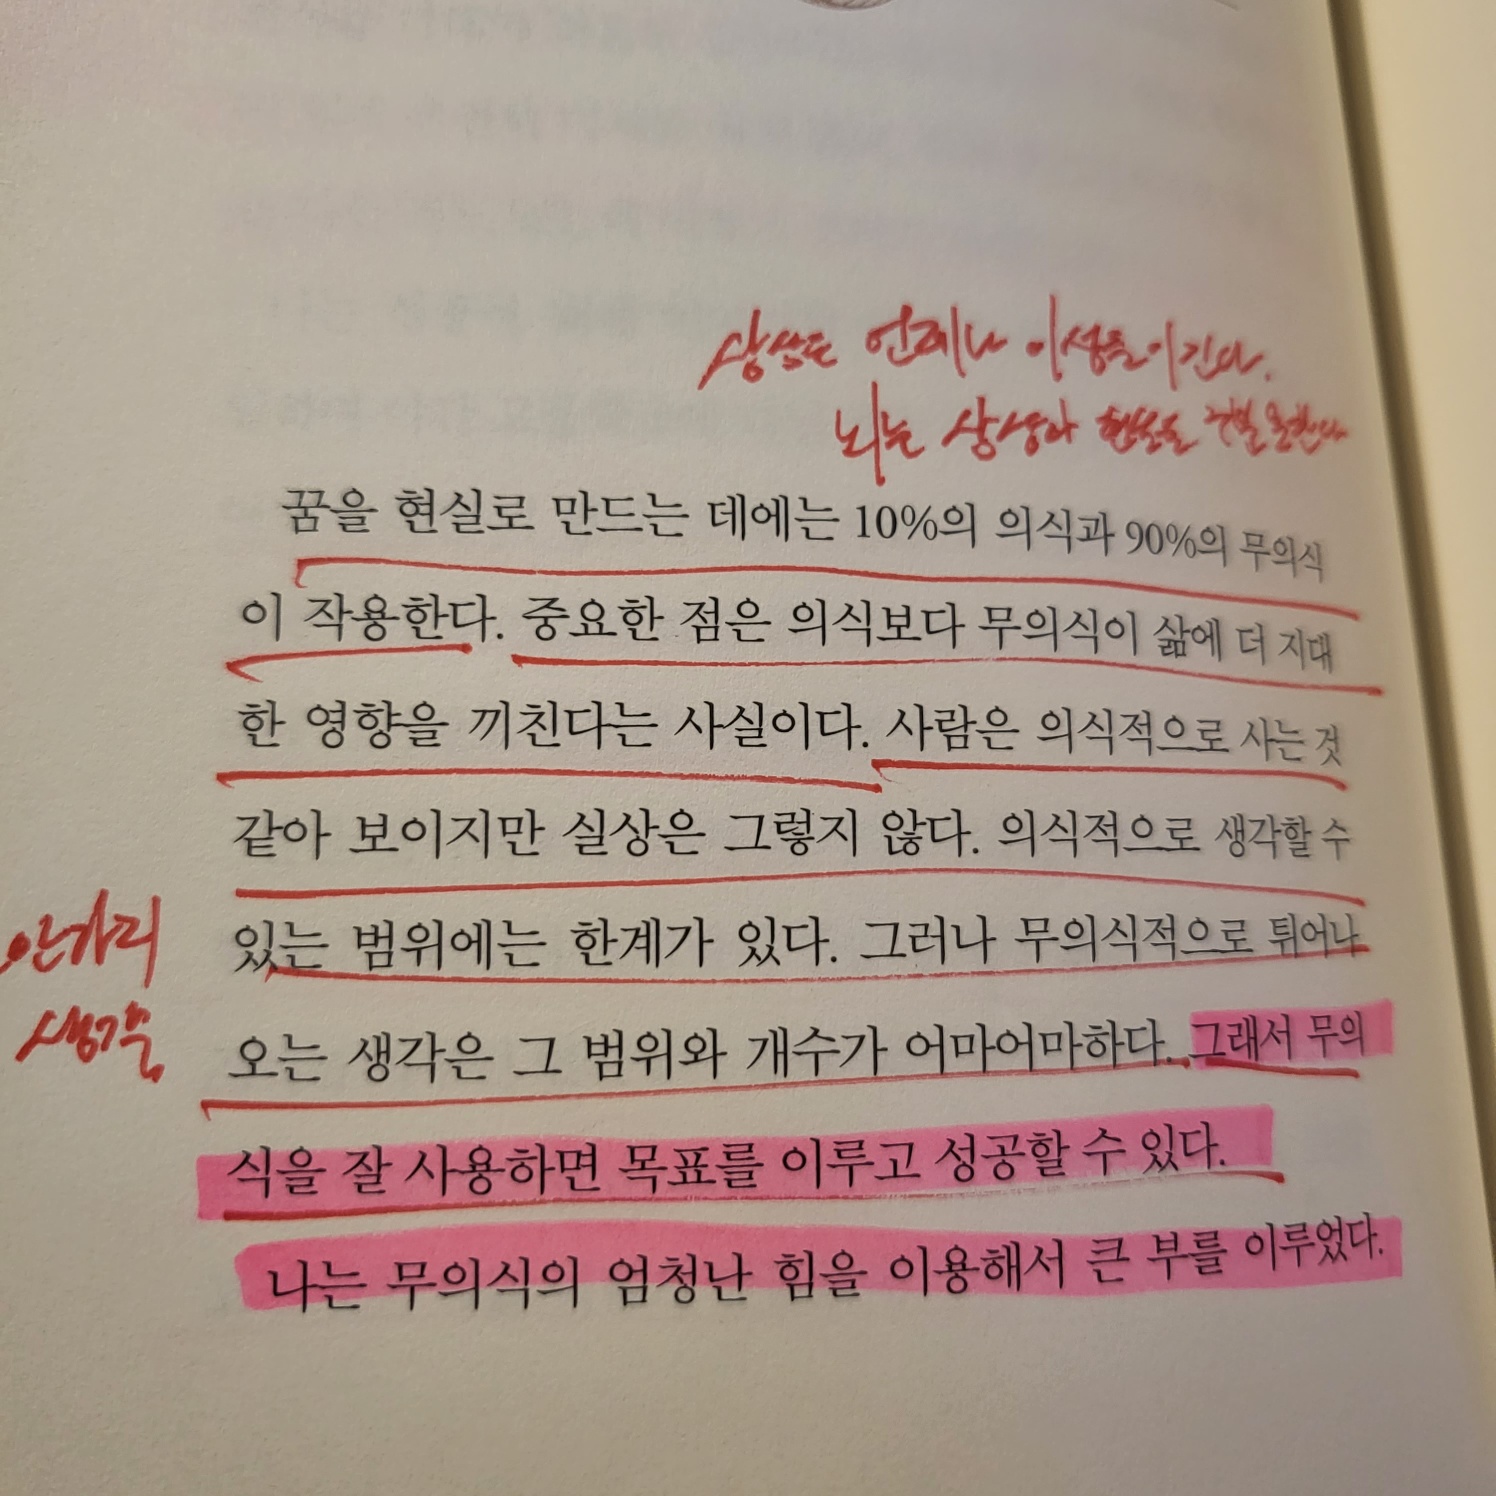 상상은 언제나 이성을 이긴다.
뇌는 상상과 현실을 구분 못한다
꿈을 현실로 만드는 데에는 10%의 의식과 90%의 무의식
이 작용한다. 중요한 점은 의식보다 무의식이 삶에 더 지대
한 영향을 끼친다는 사실이다. 사람은 의식적으로 사는 것
같아 보이지만 실상은 그렇지 않다. 의식적으로 생각할 수
있는 범위에는 한계가 있다. 그러나 무의식적으로 튀어나
오는 생각은 그 범위와 개수가 어마어마하다. 그래서 무의
식을 잘 사용하면 목표를 이루고 성공할 수 있다.
나는 무의식의 엄청난 힘을 이용해서 큰 부를 이루었다.